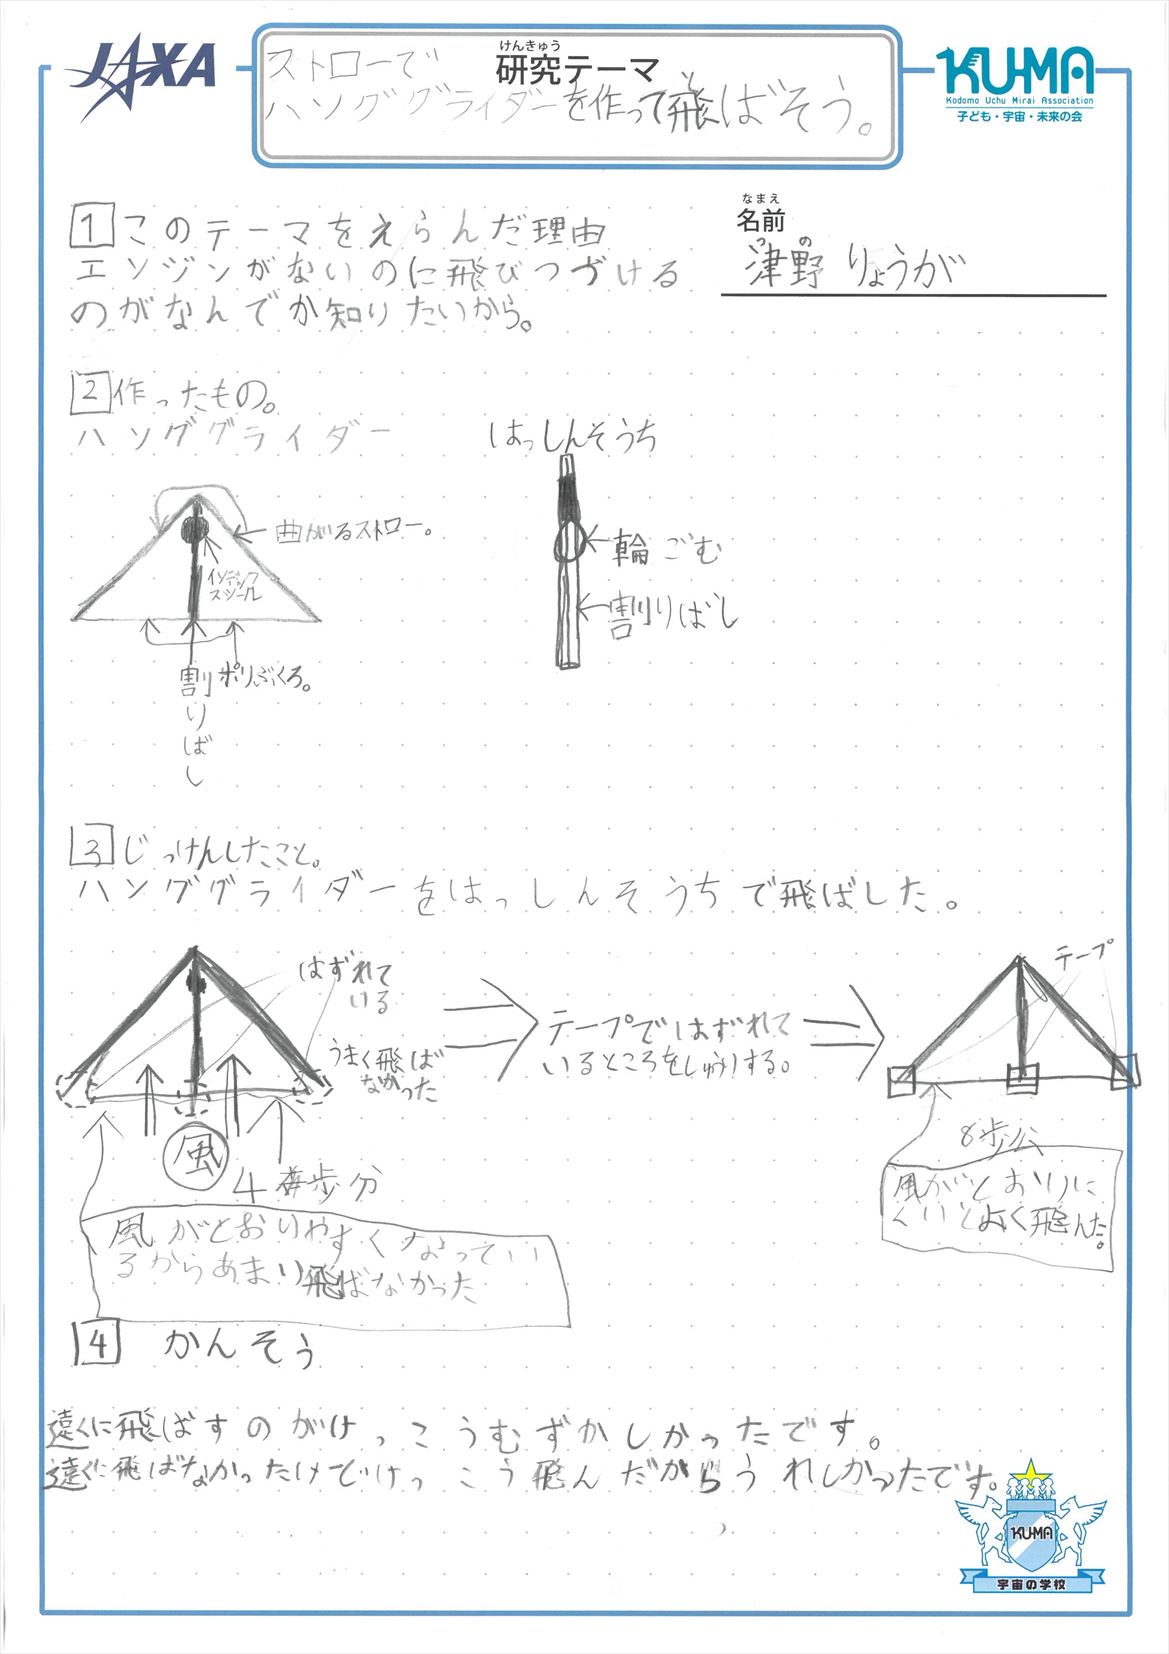 JAXA
けんきゅう
研究テーマ
ストローで
ハンググライダーを作って飛ばそう。
と
KU-MA
Kodomo Uchu Mirai Association
子ども・宇宙・未来の会
なまえ
名前
つの
津野 りょうが
1 このテーマをえらんだ理由
エンジンがないのに飛びつづける
のがなんでか知りたいから。
2 作ったもの。
ハンググライダー
はっしんそうち
曲がるストロー。
輪ごむ
割りばし
ポリぶくろ。
割りばし
3 じっけんしたこと。
ハンググライダーをはっしんそうちで飛ばした。
はずれて
いる
うまく飛ば
なかった
風
4歩分
風がとおりやすくなってい
るからあまり飛ばなかった
テープではずれて
いるところをしゅうりする。
テープ
8歩分
風がとおりに
くいとよく飛んだ。
4 かんそう
遠くに飛ばすのがけっこうむずかしかったです。
遠くに飛ばなかったけどけっこう飛んだからうれしかったです。
KU-MA
宇宙の学校